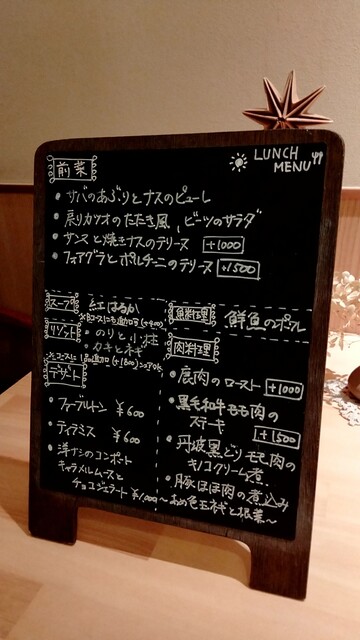 LUNCH
MENU
前菜
・サバのあぶりとナスのピューレ
・戻りカツオのたたき風、ビーツのサラダ
・サンマと焼きナスのテリーヌ +1000
・フォアグラとポルチーニのテリーヌ +1500
スープ
紅はるか
リゾット
・のりと小柱
・カキとネギ
デザート
・ファーブルトン ¥600
・ティラミス ¥600
・洋ナシのコンポート
キャラメルムースと
チョコジェラート ¥1,000
魚料理
鮮魚のポワレ
肉料理
・鹿肉のロースト +1000
・黒毛和牛モモ肉の
ステーキ +1500
・丹波黒どりモモ肉の
キノコクリーム煮
・豚ほほ肉の煮込み
〜あめ色玉ネギと根菜〜